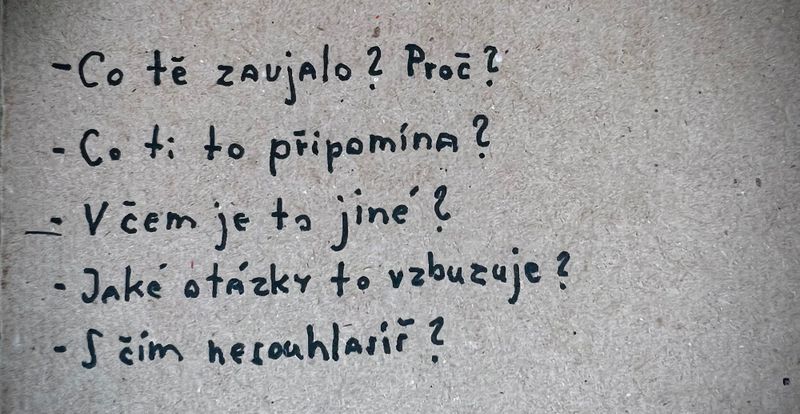 - Co tě zaujalo? Proč?
- Co ti to připomína?
- V čem je to jiné?
- Jaké otázky to vzbuzuje?
- S čím nesouhlasíš?